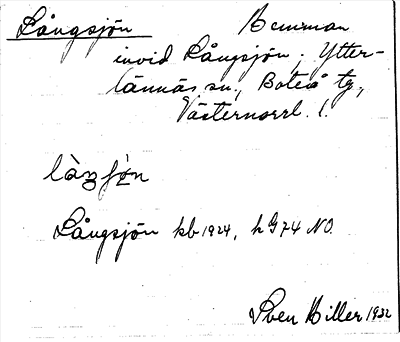 Långsjön Hemman
invid Långsjön, Ytter-
lännäs sn., Boteå tg.,
Västernorrl. l.
Långsjön kb 1924, h G 74 NO.
Sven Hiller 1932